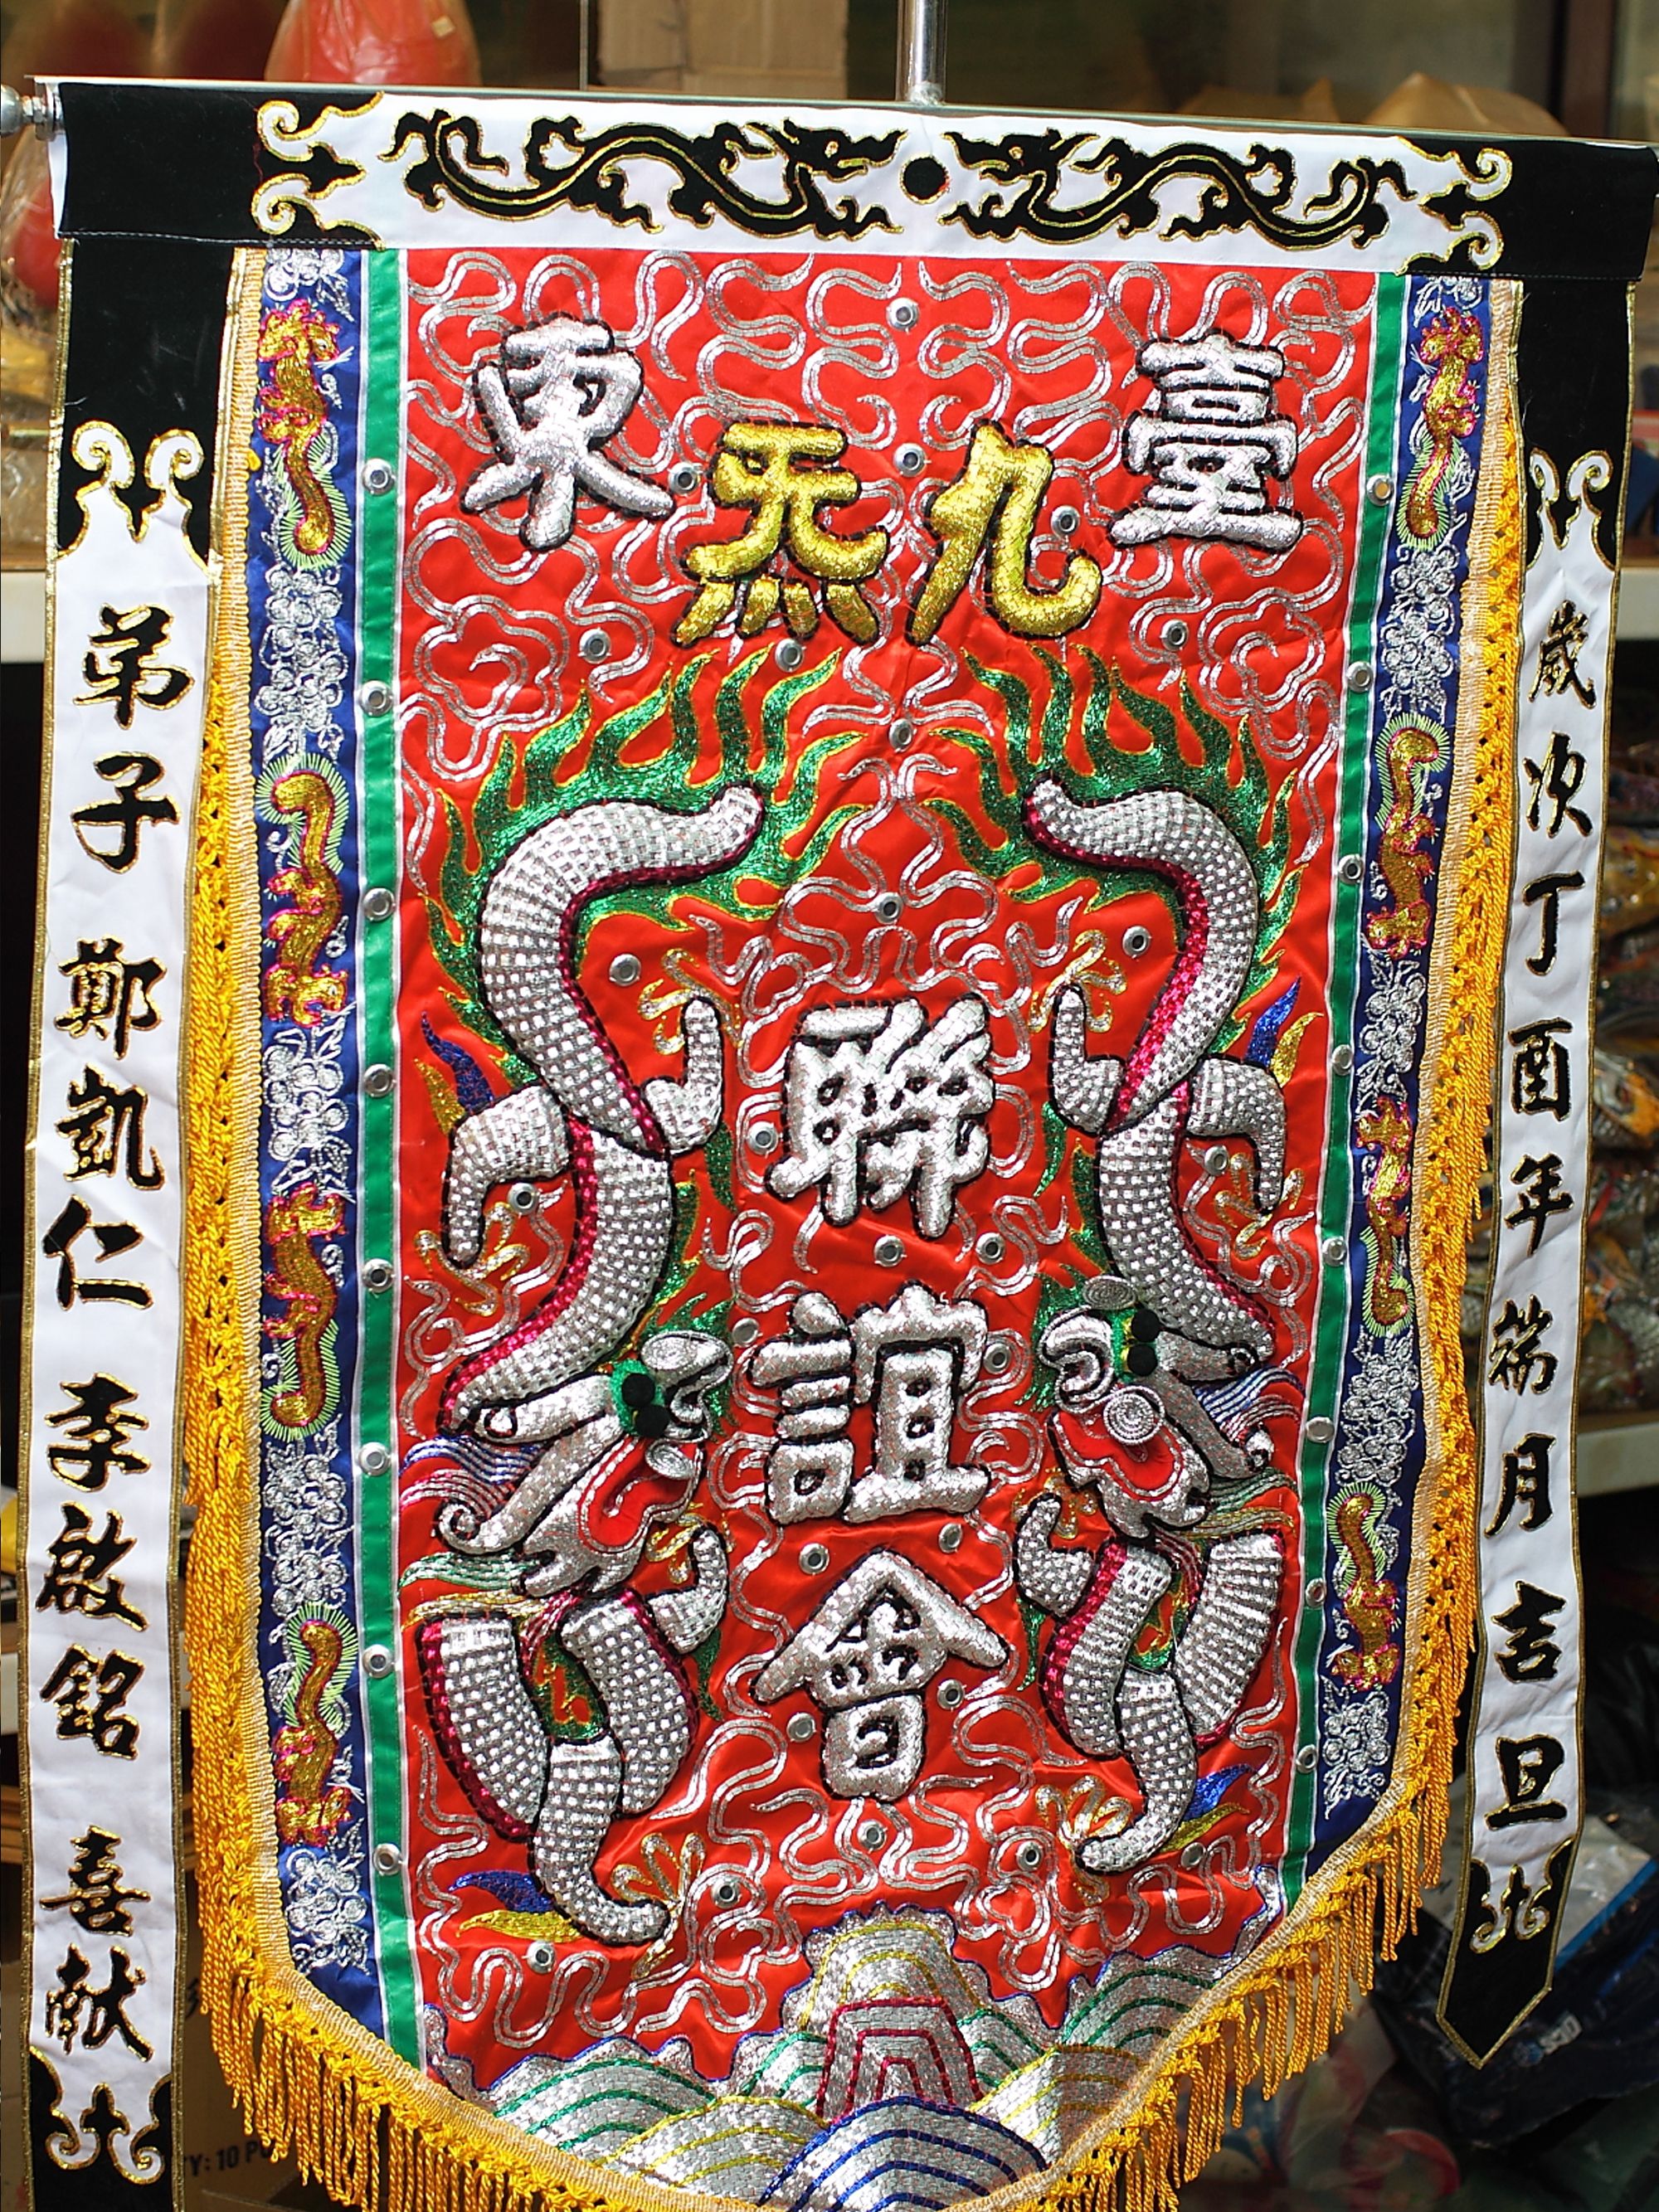 歲次丁酉年端月吉旦
臺東
九炁
聯誼會
弟子 鄭凱仁 李啟銘 喜献